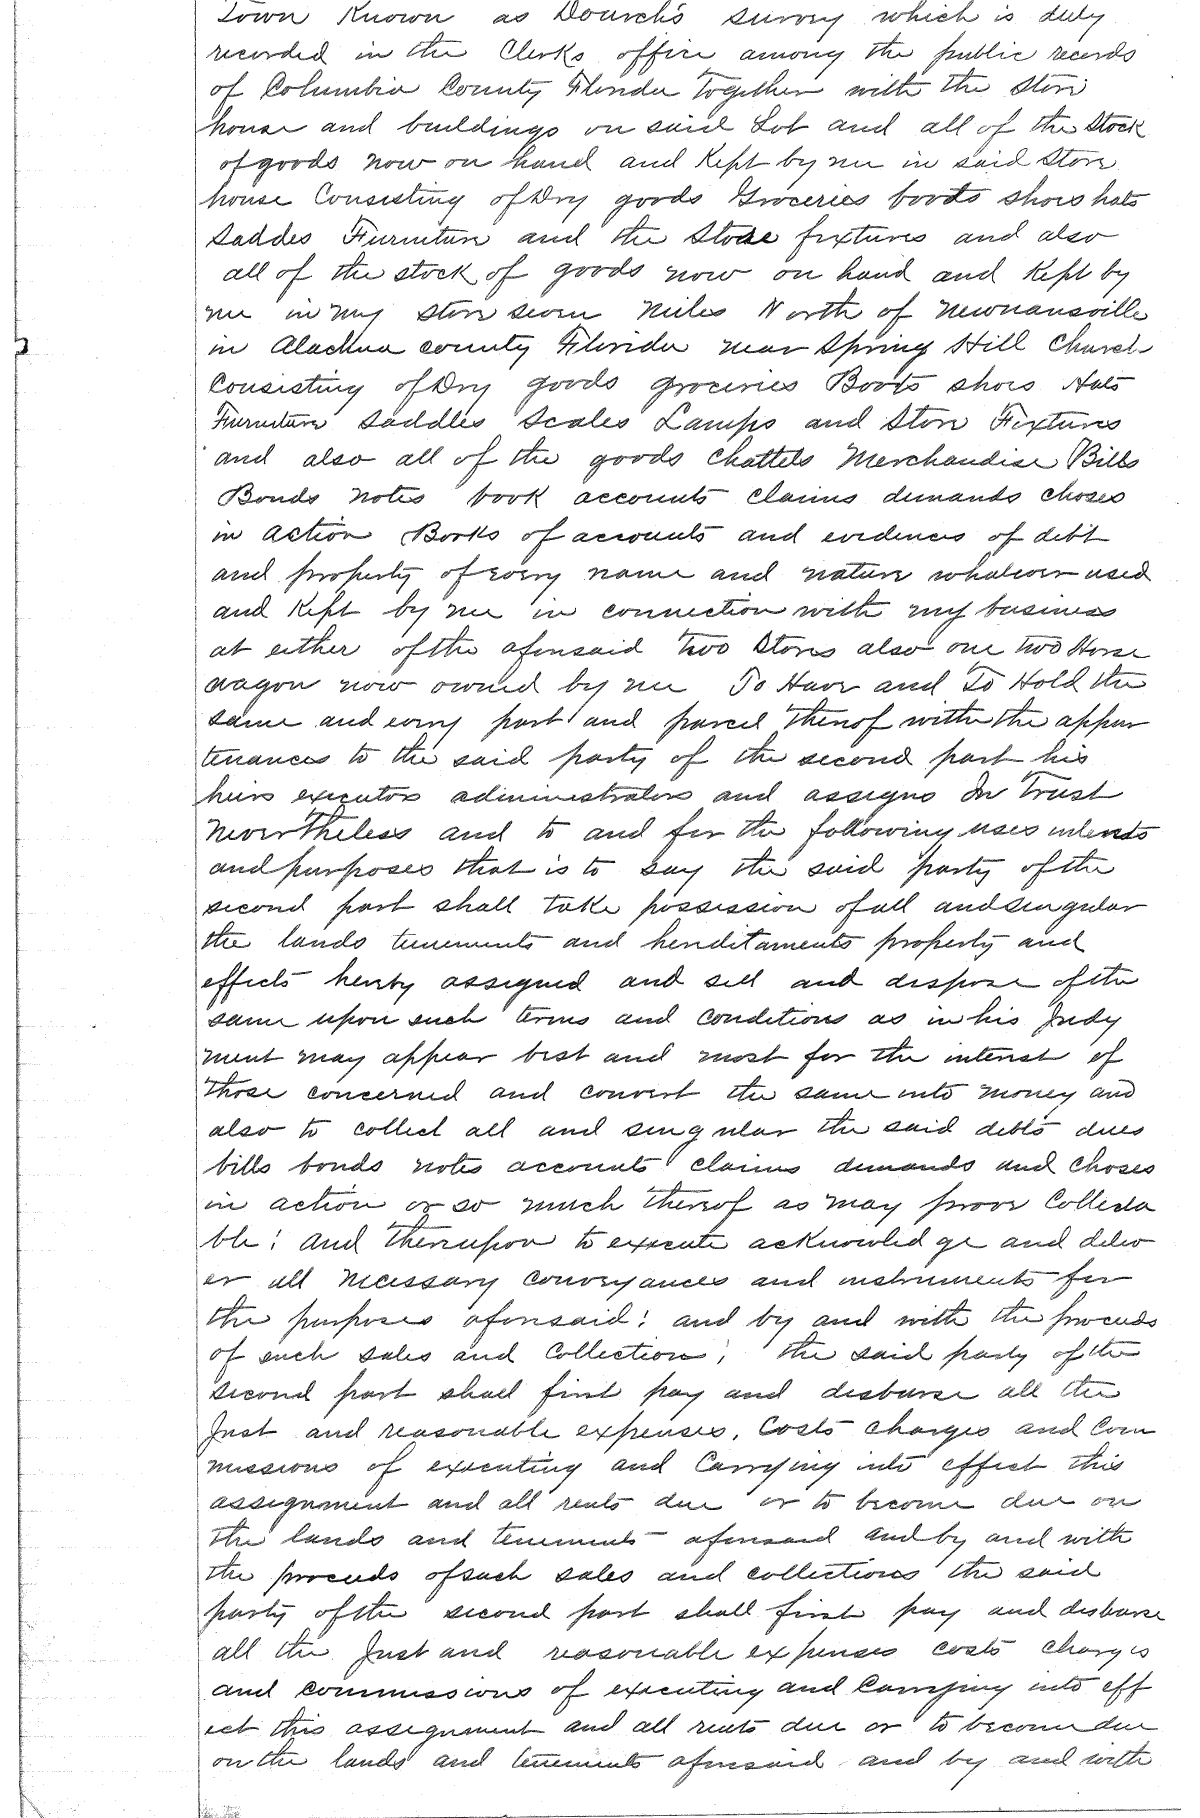 Town Known as Dourch's survey which is duly
recorded in the Clerks office among the public records
of Columbia County Florida Together with the Store
house and buildings on said Lot and all of the Stock
of goods now on hand and Kept by me in said Store
house Consisting of Dry goods Groceries boots shoes hats
Saddes Furniture and the Store fixtures and also
all of the stock of goods now on hand and Kept by
me in my store seven Miles North of Newnansville
in Alachua county Florida near Spring Hill Church
Consisting of Dry goods groceries Boots shoes Hats
Furniture Saddles Scales Lamps and Store Fixtures
and also all of the goods Chattels Merchandise Bills
Bonds notes book accounts claims demands choses
in action Books of accounts and evidences of debt
and property of every name and nature whatever used
and Kept by me in connection with my business
at either of the aforesaid two Stores also one two Horse
wagon now owned by me To Have and To Hold the
same and every part and parcel thereof with the appur
tenances to the said party of the second part his
heirs executors administrators and assigns In Trust
Nevertheless and to and for the following uses intents
and purposes that is to say the said party of the
second part shall take possession of all and singular
the lands tenements and hereditaments property and
effects hereby assigned and sell and dispose of the
same upon such terms and conditions as in his Judg
ment may appear best and most for the interest of
those concerned and convert the same into money and
also to collect all and singular the said debts dues
bills bonds notes accounts claims demands and choses
in action or so much thereof as may prove Collecta
ble; and thereupon to execute acknowledge and deliv
er all necessary conveyances and instruments for
the purposes aforesaid; and by and with the proceeds
of such sales and Collections; the said party of the
second part shall first pay and disburse all the
Just and reasonable expenses, Costs charges and Com
missions of executing and Carrying into effect this
assignment and all rents due or to become due on
the lands and tenements aforesaid and by and with
the proceeds of such sales and collections the said
party of the second part shall first pay and disburse
all the Just and reasonable expenses costs charges
and commissions of executing and Carrying into eff
ect this assignment and all rents due or to become due
on the lands and tenements aforesaid and by and with